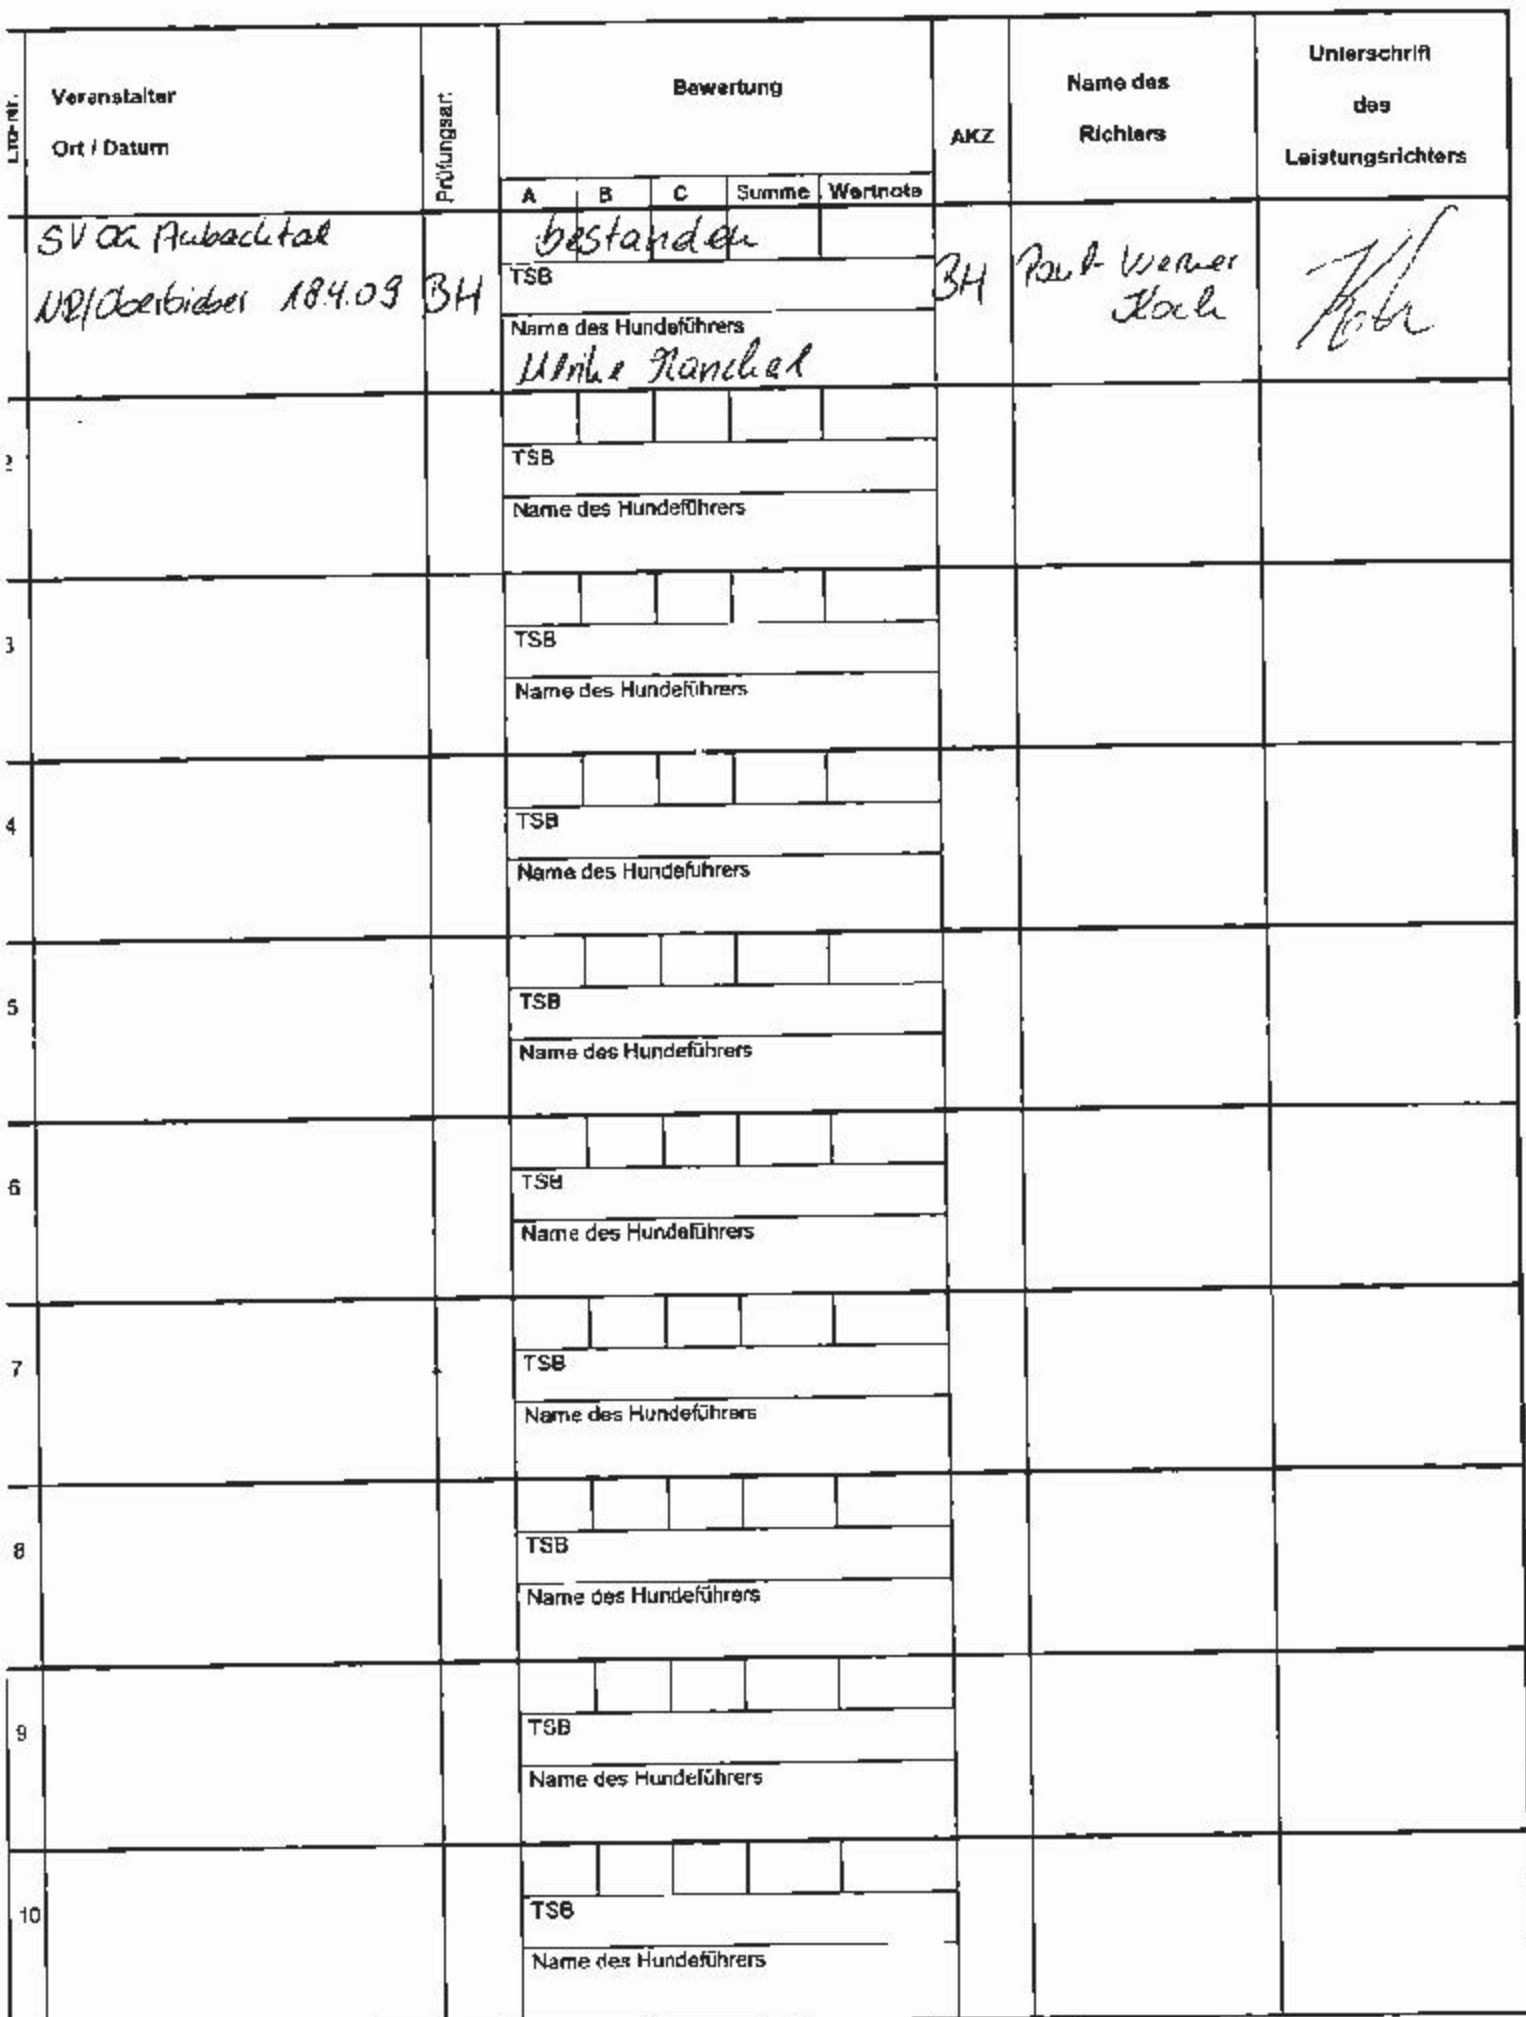 Lfd-Nr.
Veranstalter
Ort / Datum
Prüfungsart
Bewertung
A B C Summe Wertnote
AKZ
Name des
Richters
Unterschrift
des
Leistungsrichters
SV OG Aubachtal
NR/Oberbieber 18.4.09
BH
bestanden
TSB
Name des Hundeführers
Ulrike
BH
Werner
Koch
2
TSB
Name des Hundeführers
3
TSB
Name des Hundeführers
4
TSB
Name des Hundeführers
5
TSB
Name des Hundeführers
6
TSB
Name des Hundeführers
7
TSB
Name des Hundeführers
8
TSB
Name des Hundeführers
9
TSB
Name des Hundeführers
10
TSB
Name des Hundeführers